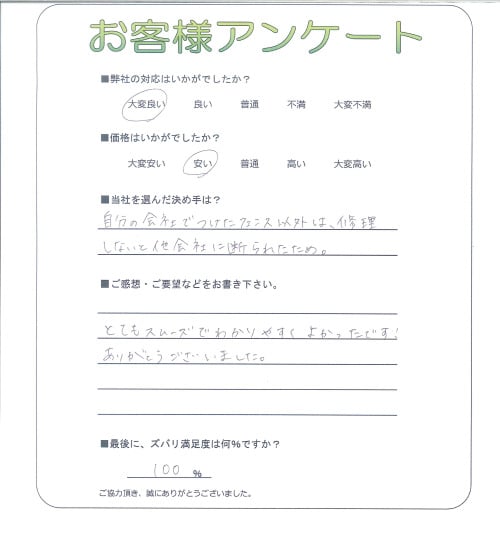 お客様アンケート
■弊社の対応はいかがでしたか？
大変良い 良い 普通 不満 大変不満
■価格はいかがでしたか？
大変安い 安い 普通 高い 大変高い
■当社を選んだ決め手は？
自分の会社でつけたフェンス以外は、修理
しないと他会社に断られたため。
■ご感想・ご要望などをお書き下さい。
とてもスムーズでわかりやすくよかったです！
ありがとうございました。
■最後に、ズバリ満足度は何％ですか？
100 ％
ご協力頂き、誠にありがとうございました。